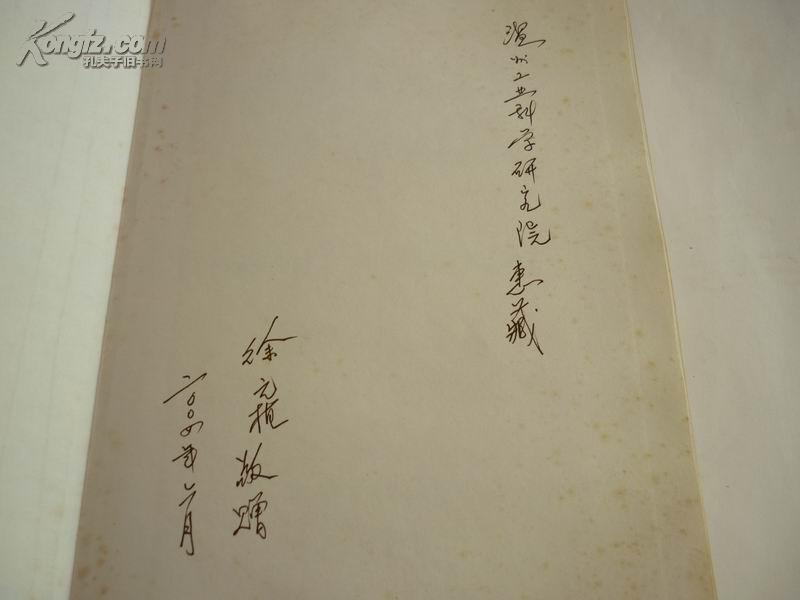 温州工业科学研究院惠藏
徐元植敬赠
二〇〇四年六月
Kongfz.com
孔夫子旧书网